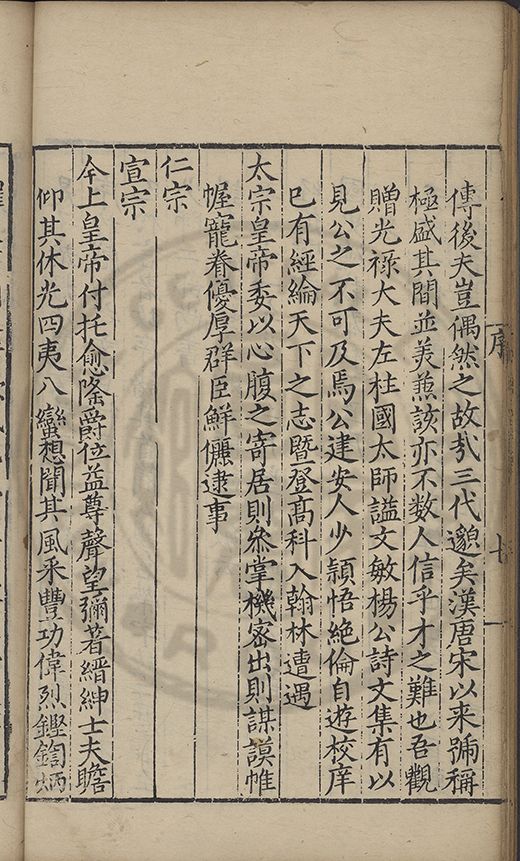 傳後夫豈偶然之故㢤三代邈矣漢唐宋以来號稱
極盛其間並美兼該亦不数人信乎才之難也吾觀
贈光禄大夫左柱國太師謚文敏楊公詩文集有以
見公之不可及焉公建安人少頴悟絶倫自遊校庠
已有經綸天下之志暨登髙科入翰林遭遇
太宗皇帝委以心腹之寄居則叅掌機密出則謀謨帷
幄寵眷優厚群臣鮮儷逮事
仁宗
宣宗
今上皇帝付托愈隆爵位益尊聲望彌著縉紳士夫瞻
仰其休光四夷八蠻想聞其風采豐功偉烈鏗鍧炳
序
七